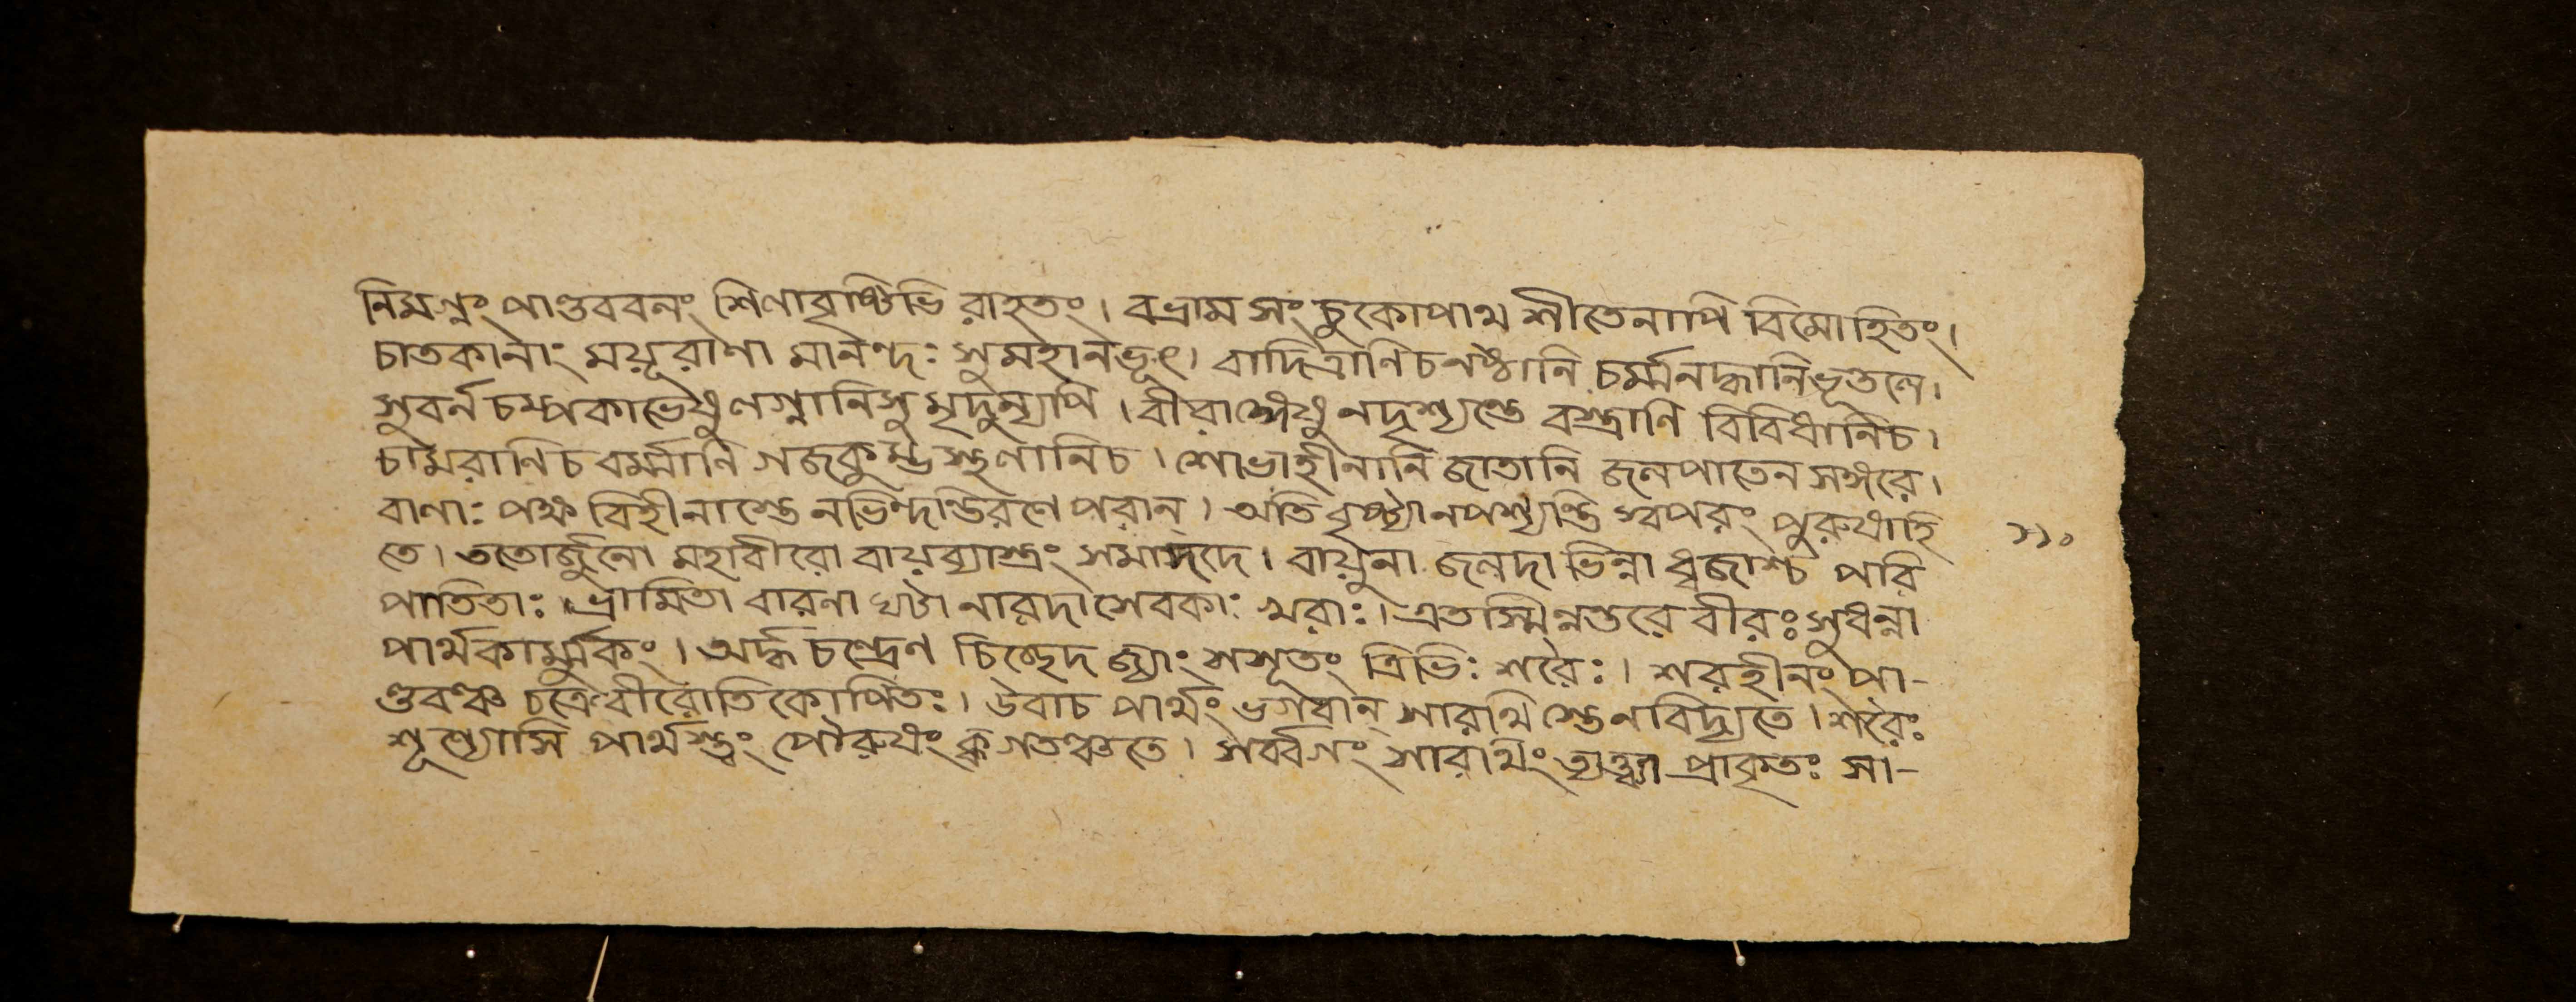 নিমগ্নং পাণ্ডববনং শিলাবৃষ্টিভি রাহতং। বভ্রাম সং চুকোপাথ শীতেনাপি বিমোহিতং।
চাতকানাং ময়ূরাণা মানন্দঃ সুমহানভূৎ। বাদিত্রাণিচ নষ্ঠানি চর্ম্মনদ্ধানিভূতলে।
সুবর্ন চম্পকাভেষু লগ্নানিসু মৃদুন্যপি। বীরাঙ্গেষু নদৃশ্যন্তে বস্ত্রাণি বিবিধানিচ।
চামরাণিচ বর্ম্মাণি গজকুম্ভস্থলানিচ। শোভাহীনানি জাতানি জলপাতেন সঙ্গরে।
বাণাঃ পক্ষ বিহীনাস্তে নভিন্দন্তিরণে পরান্। অতি বৃষ্ট্যানপশ্যন্তি স্বপরং পুরুষাহি ১১০
তে। ততোর্জুনো মহাবীরো বায়ব্যাস্ত্রং সমাদদে। বায়ুনা জলদা ভিন্না ধ্বজাশ্চ পরি
পাতিতাঃ। ভ্রামিতা বারণা ঘণ্টা নারদা সেবকাঃ খরাঃ। এতস্মিন্নন্তরে বীরঃ সুধন্বা
পার্থকার্ম্মুকং। অর্দ্ধ চন্দ্রেণ চিচ্ছেদ জ্যাং সসূতং ত্রিভিঃ শরৈঃ। শরহীনং পা-
ণ্ডবঞ্চ চক্রে বীরোতি কোপিতঃ। উবাচ পার্থং ভগবান্ সারথি স্তে নবিদ্যতে। শরৈঃ
শূন্যোসি পার্থস্ত্বং পৌরুষং ক্ব গতঞ্চতে। সর্ব্বগং সারথিং ত্যক্ত্বা প্রাকৃতঃ সা-